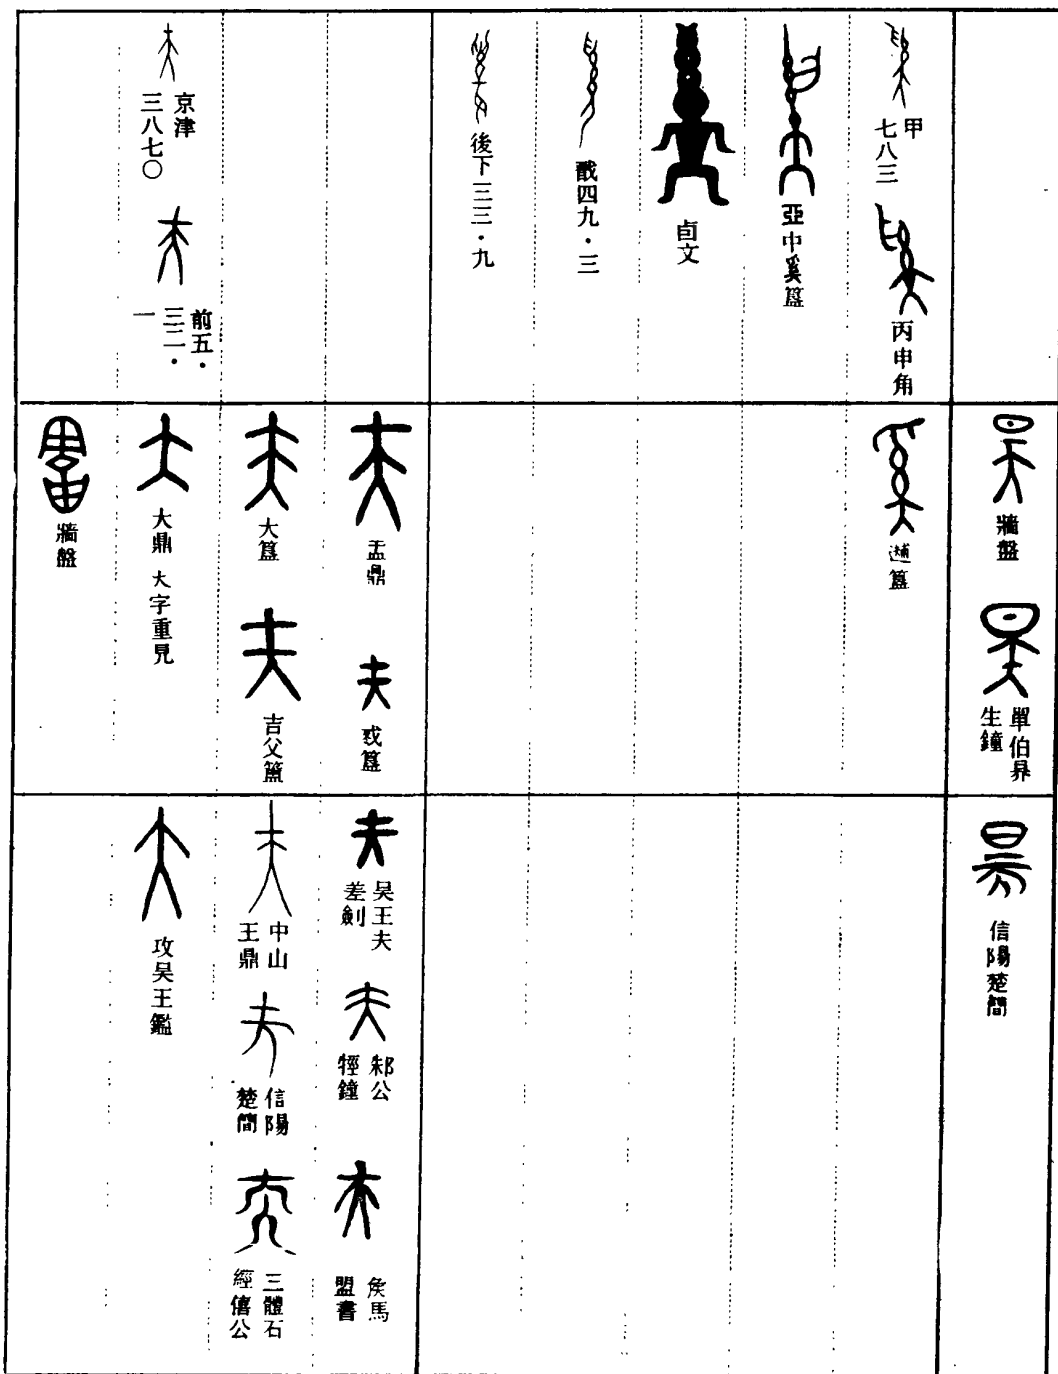 甲
七八三
丙申角
亞中奚簋
卣文
戩四九・三
後下三三・九
京津
三八七〇
前五・
三二・
一
牆盤
單伯昪
生鐘
趞簋
盂鼎
𢦚簋
大簋
吉父簠
大鼎 大字重見
牆盤
信陽楚簡
吴王夫
差劍
邾公
牼鐘
矦馬
盟書
中山
王鼎
信陽
楚簡
三體石
經僖公
攻吴王鑑